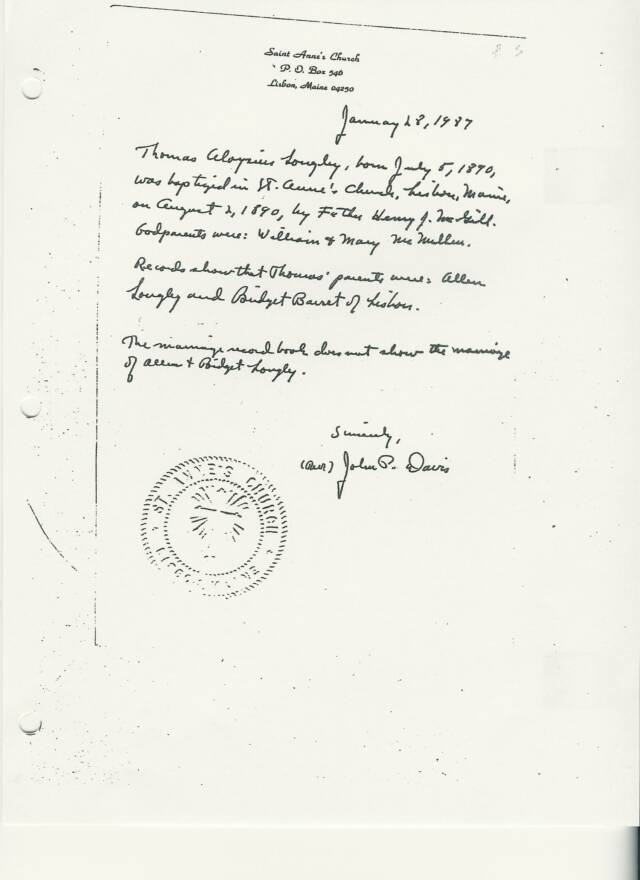 Saint Anne's Church
P. O. Box 546
Lisbon, Maine 04250
January 28, 1987
Thomas Aloysius Longly, born July 5, 1890,
was baptized in St. Anne's Church, Lisbon, Maine,
on August 2, 1890, by Father Henry J. McGill.
Godparents were: William & Mary McMullen.
Records show that Thomas' parents were: Allen
Longly and Bridget Barret of Lisbon.
The marriage record book does not show the marriage
of Allen & Bridget Longly.
Sincerely,
(Rev.) John P. Davis
ST. ANNE'S CHURCH